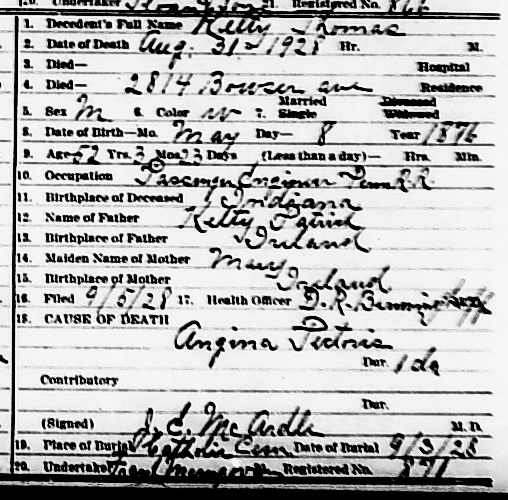 20. Undertaker 21. Registered No. 866
1. Decedent's Full Name Kelty Thomas
2. Date of Death Aug. 31st 1928 Hr. M.
3. Died— Hospital
4. Died— 2814 Bowser ave Residence
5. Sex M 6. Color W 7. Married Single Divorced Widowed
8. Date of Birth—Mo. May Day— 8 Year 1876
9. Age 52 Yrs. 3 Mos. 23 Days (Less than a day)— Hrs. Min.
10. Occupation Passenger Engineer Penn R.R.
11. Birthplace of Deceased Indiana
12. Name of Father Kelty Patrick
13. Birthplace of Father Ireland
14. Maiden Name of Mother Mary
15. Birthplace of Mother Ireland
16. Filed 9/5/28 17. Health Officer D. R.
18. CAUSE OF DEATH
Angina Pectoris
Dur. 1 da
Contributory
Dur.
(Signed) J. E. McArdle M. D.
19. Place of Burial Catholic Cem Date of Burial 9/3/28
20. Undertaker Registered No. 871